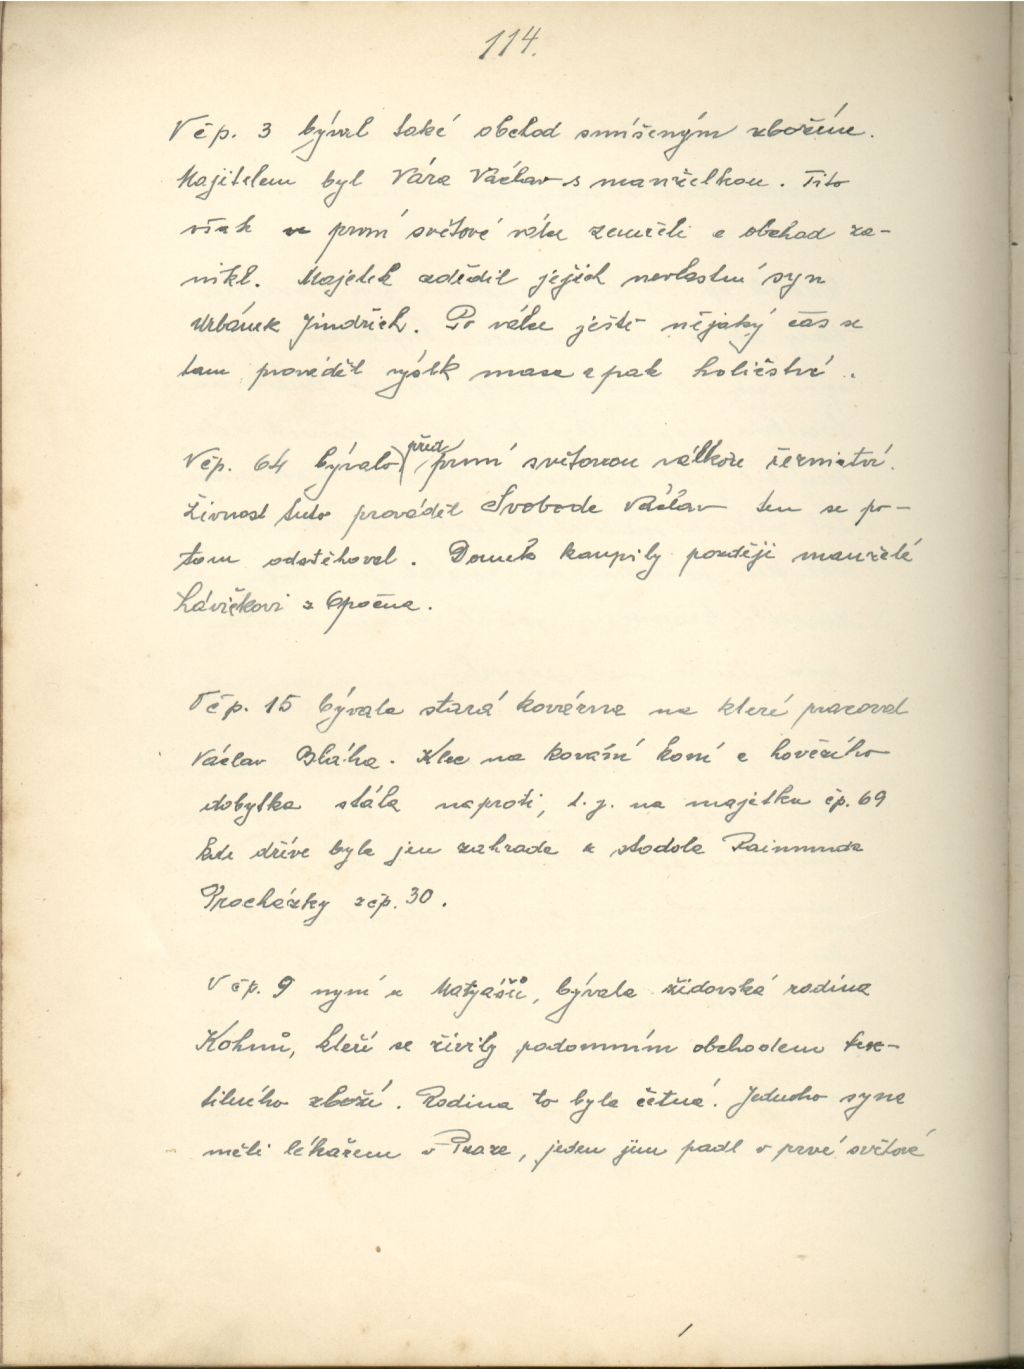 114.
V čp. 3 býval také obchod smíšeným zbožím.
Majitelem byl Vára Václav s manželkou. Tito
však v první světové válce zemřeli a obchod za-
nikl. Majetek zdědil jejich nevlastní syn
Urbánek Jindřich. Po válce ještě nějaký čas se
tam prováděl výsek masa a pak holičství.
V čp. 64 bývalo před první světovou válkou řeznictví.
Živnost tuto prováděl Svoboda Václav ten se po-
tom odstěhoval. Domek koupily později manželé
Hávičkovi z Opočna.
V čp. 15 bývala stará kovárna na které pracoval
Václav Bláha. Klec na kování koní a hovězího
dobytka stála naproti, t.j. na majetku čp. 69
kde dříve byla jen zahrada a stodola Raimunda
Procházky z čp. 30.
V čp. 9 nyní u Matyášů, bývala židovská rodina
Kohnů, kteří se živily podomním obchodem tex-
tilního zboží. Rodina to byla četná. Jednoho syna
měli lékařem v Praze, jeden jim padl v prvé světové